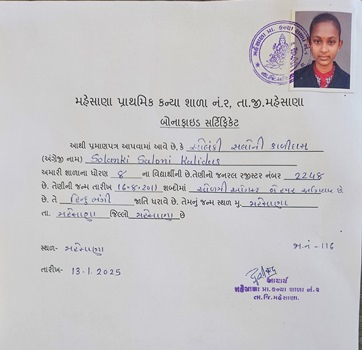 મહેસાણા પ્રાથમિક કન્યા શાળા નં.૨, તા.જી.મહેસાણા
બોનાફાઇડ સર્ટિફિકેટ
આથી પ્રમાણપત્ર આપવામાં આવે છે. કે સોલંકી સલોની કાળીદાસ
(અંગ્રેજી નામ) Solanki Saloni Kalidas
અમારી શાળાના ધોરણ 8 ના વિદ્યાર્થીની છે.તેણીનો જનરલ રજીસ્ટર નંબર 2248
છે. તેણીની જન્મ તારીખ 16-8-201 શબ્દોમાં સોળમી ઓગસ્ટ બે હજાર
છે. તે હિન્દુ જાતિ ધરાવે છે. તેમનું જન્મ સ્થળ મુ. મહેસાણા
તા. મહેસાણા જિલ્લો મહેસાણા છે
સ્થળ- મહેસાણા
જા.નં - 116
તારીખ- 13-1-2025
આચાર્ય
મહેસાણા પ્રા. કન્યા શાળા નં. ૨
તા.જિ. મહેસાણા.